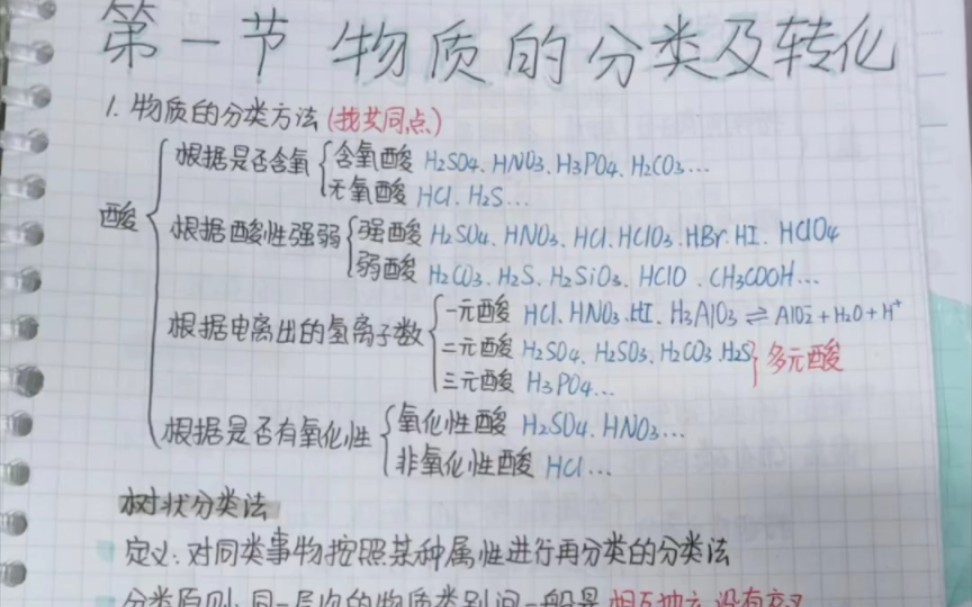 第一节 物质的分类及转化
1. 物质的分类方法 (找共同点)
酸
根据是否含氧
含氧酸 H2SO4. HNO3. H3PO4. H2CO3...
无氧酸 HCl. H2S...
根据酸性强弱
强酸 H2SO4. HNO3. HCl. HClO3. HBr. HI. HClO4
弱酸 H2CO3. H2S. H2SiO3. HClO. CH3COOH...
根据电离出的氢离子数
一元酸 HCl. HNO3. HI. H3AlO3 ⇌ AlO2⁻ + H2O + H⁺
二元酸 H2SO4. H2SO3. H2CO3. H2S
三元酸 H3PO4...
多元酸
根据是否有氧化性
氧化性酸 H2SO4. HNO3...
非氧化性酸 HCl...
树状分类法
定义: 对同类事物按照某种属性进行再分类的分类法
分类原则: 同一层次的物质类别间一般是 相互独立 没有交叉